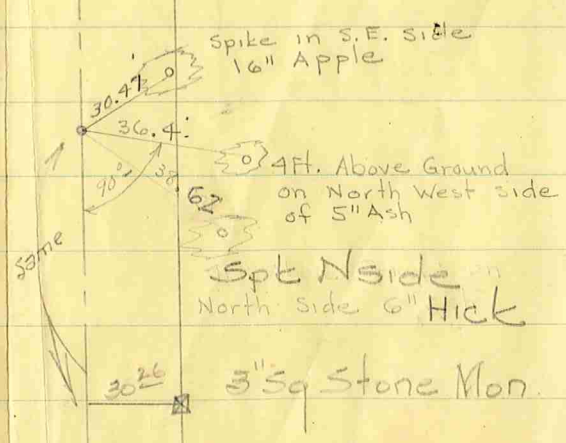 Spike in S.E. Side
16" Apple
30.47
36.4'
4Ft. Above Ground
on North West side
of 5" Ash
90°
38.62
Same
Spk Nside on
North Side 6" Hick
30 26
3" Sq Stone Mon.